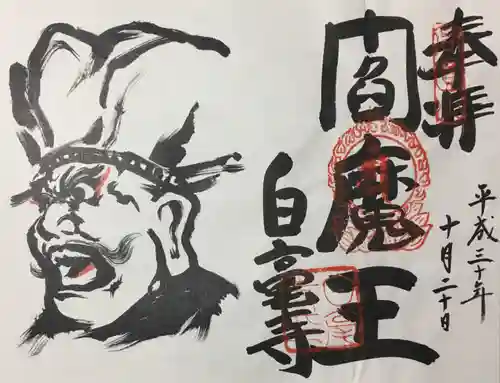 奉拝
平成三十年
十月二十日
閻魔王
白高寺